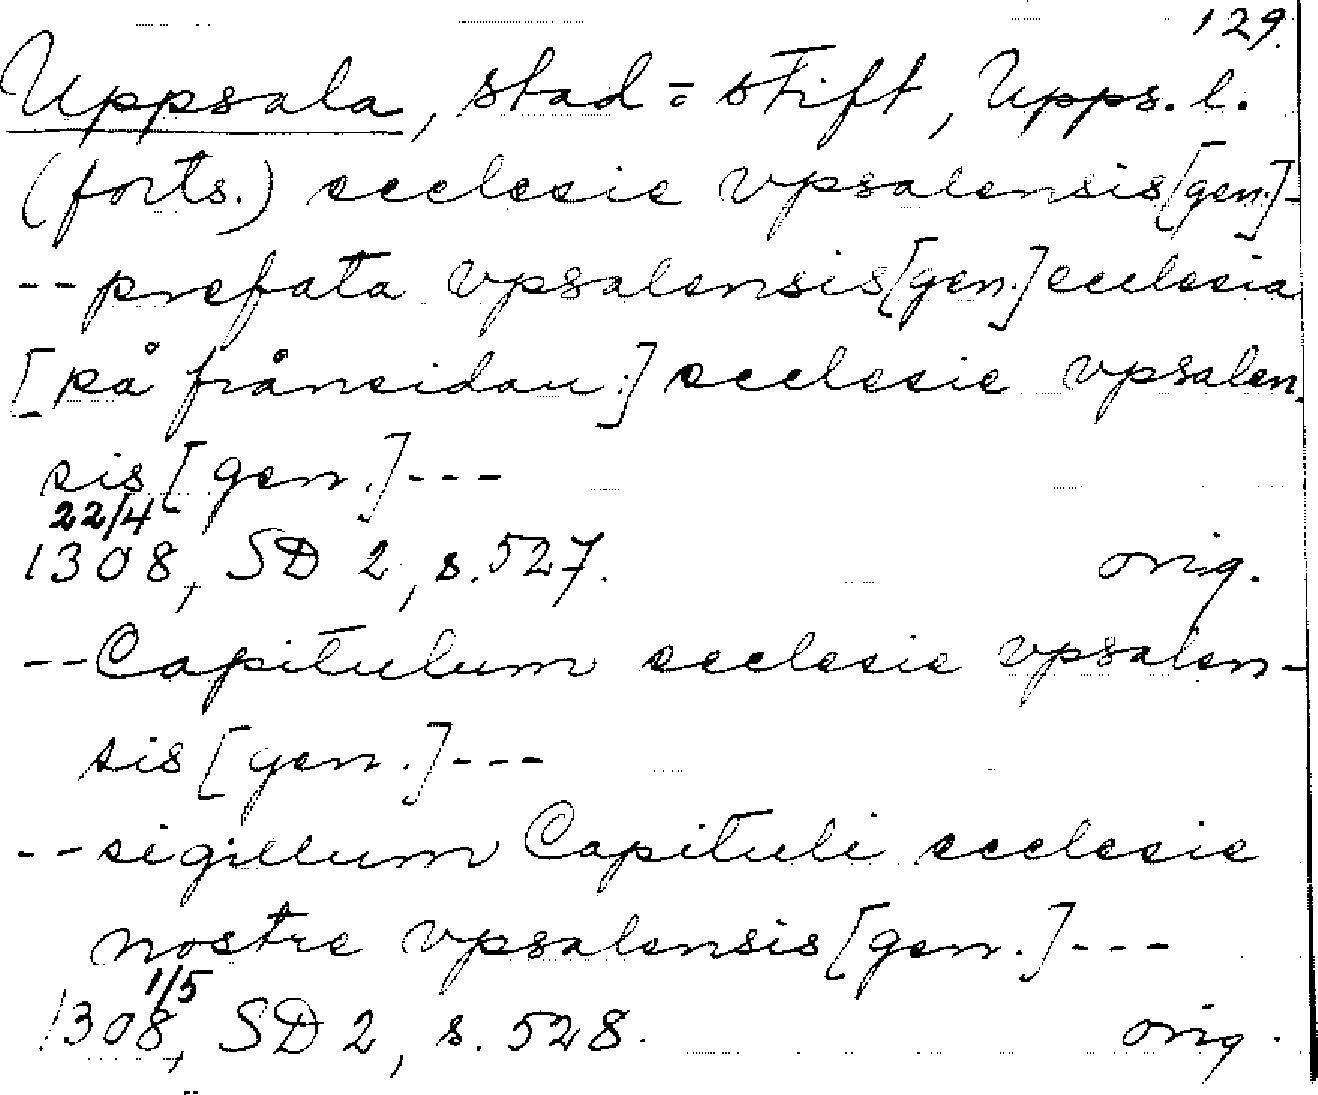 129.
Uppsala, stad = stift, Upps. l.
(forts.) ecclesie vpsalensis [gen.] -
-- prefata vpsalensis [gen.] ecclesia
[på frånsidan:] ecclesie vpsalen-
sis [gen.] ---
22/4
1308, SD 2, s. 527. orig.
-- Capitulum ecclesie vpsalen-
sis [gen.] ---
-- sigillum Capituli ecclesie
nostre vpsalensis [gen.] ---
1/5
1308, SD 2, s. 528. orig.